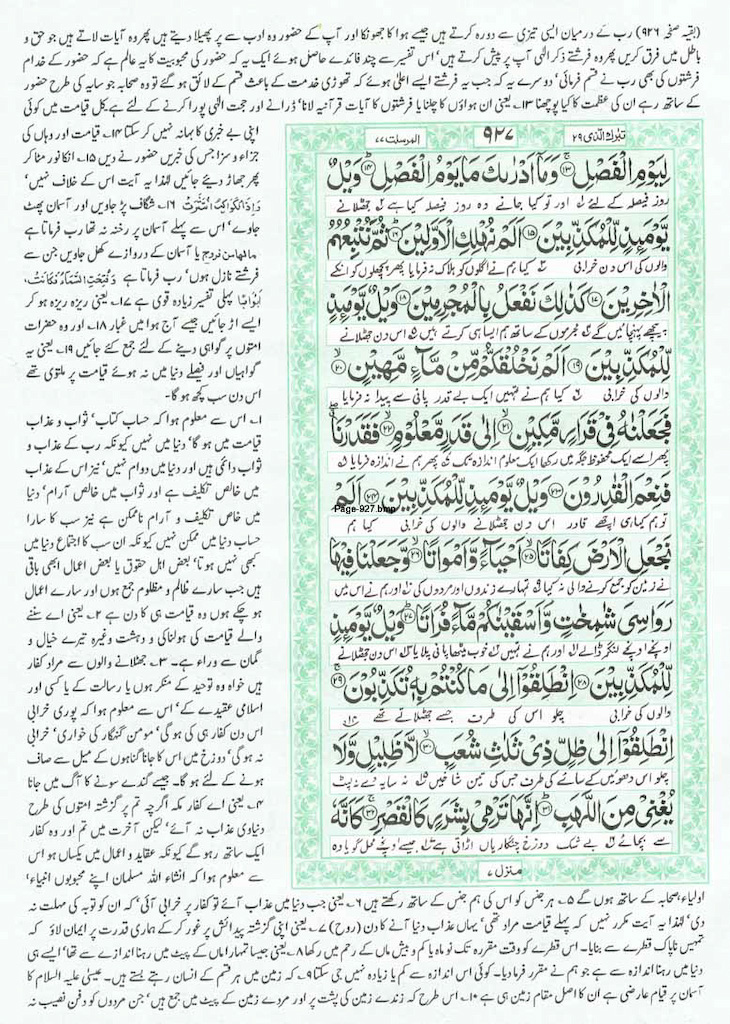 (بقیہ صفحہ ۹۲۶) رب کے درمیان ایسی تیزی سے دورہ کرتے ہیں جیسے ہوا کا جھونکا اور آپ کے حضور وہ ادب سے پر پھیلا دیتے ہیں پھر وہ آیات لاتے ہیں جو حق و
باطل میں فرق کریں پھر وہ فرشتے ذکر الٰہی آپ پر پیش کرتے ہیں' اس تفسیر سے چند فائدے حاصل ہوئے ایک یہ کہ حضور کی محبوبیت کا یہ عالم ہے کہ حضور کے خدام
فرشتوں کی بھی رب نے قسم فرمائی' دوسرے یہ کہ جب یہ فرشتے ایسے اعلیٰ ہوئے کہ تھوڑی خدمت کے باعث قسم کے لائق ہو گئے تو وہ صحابہ جو سایہ کی طرح حضور
کے ساتھ رہے ان کی عظمت کا کیا پوچھنا ۱۳۔ یعنی ان ہواؤں کا چلنا یا فرشتوں کا آیات قرآنیہ لانا' ڈرانے اور حجت الٰہی پورا کرنے کے لئے ہے کل قیامت میں کوئی
تبٰرک الذی ۲۹
۹۲۷
المرسلت ۷۷
لِيَوْمِ الْفَصْلِ ۱۳ وَمَا أَدْرٰىكَ مَا يَوْمُ الْفَصْلِ ۱۴ وَيْلٌ
روز فیصلہ کے لئے اور تو کیا جانے وہ روز فیصلہ کیا ہے جھٹلانے
يَّوْمَئِذٍ لِّلْمُكَذِّبِيْنَ ۱۵ اَلَمْ نُهْلِكِ الْاَوَّلِيْنَ ۱۶ ثُمَّ نُتْبِعُهُمُ
والوں کی اس دن خرابی کیا ہم نے اگلوں کو ہلاک نہ فرمایا پھر پچھلوں کو انکے
الْاٰخِرِيْنَ ۱۷ كَذٰلِكَ نَفْعَلُ بِالْمُجْرِمِيْنَ ۱۸ وَيْلٌ يَّوْمَئِذٍ
پیچھے پہنچائیں گے مجرموں کے ساتھ ہم ایسا ہی کرتے ہیں اس دن جھٹلانے
لِّلْمُكَذِّبِيْنَ ۱۹ اَلَمْ نَخْلُقْكُّمْ مِّنْ مَّآءٍ مَّهِيْنٍ ۲۰
والوں کی خرابی کیا ہم نے تمہیں ایک بے قدر پانی سے پیدا نہ فرمایا
فَجَعَلْنٰهُ فِىْ قَرَارٍ مَّكِيْنٍ ۲۱ اِلٰى قَدَرٍ مَّعْلُوْمٍ ۲۲ فَقَدَرْنَا
پھر اسے ایک محفوظ جگہ میں رکھا ایک معلوم اندازہ تک پھر ہم نے اندازہ فرمایا
فَنِعْمَ الْقٰدِرُوْنَ ۲۳ وَيْلٌ يَّوْمَئِذٍ لِّلْمُكَذِّبِيْنَ ۲۴ اَلَمْ
Page-927.bmp
تو ہم کیا ہی اچھے قادر اس دن جھٹلانے والوں کی خرابی کیا ہم
نَجْعَلِ الْاَرْضَ كِفَاتًا ۲۵ اَحْيَآءً وَّاَمْوَاتًا ۲۶ وَّجَعَلْنَا فِيْهَا
نے زمین کو جمع کرنے والی نہ کیا تمہارے زندوں اور مردوں کی اور ہم نے اس میں
رَوَاسِىَ شٰمِخٰتٍ وَّاَسْقَيْنٰكُمْ مَّآءً فُرَاتًا ۲۷ وَيْلٌ يَّوْمَئِذٍ
اونچے اونچے لنگر ڈالے اور ہم نے تمہیں خوب میٹھا پانی پلایا اس دن جھٹلانے
لِّلْمُكَذِّبِيْنَ ۲۸ اِنْطَلِقُوْٓا اِلٰى مَا كُنْتُمْ بِهٖ تُكَذِّبُوْنَ ۲۹
والوں کی خرابی چلو اس کی طرف جسے جھٹلاتے تھے
اِنْطَلِقُوْٓا اِلٰى ظِلٍّ ذِىْ ثَلٰثِ شُعَبٍ ۳۰ لَّا ظَلِيْلٍ وَّلَا
چلو اس دھوئیں کے سائے کی طرف جس کی تین شاخیں نہ سایہ دے نہ لپٹ
يُغْنِىْ مِنَ اللَّهَبِ ۳۱ اِنَّهَا تَرْمِىْ بِشَرَرٍ كَالْقَصْرِ ۳۲ كَاَنَّهٗ
سے بچائے بے شک دوزخ چنگاریاں اڑاتی ہے جیسے اونچے محل گویا وہ
منزل ۷
اپنی بے خبری کا بہانہ نہیں کر سکتا ۱۴۔ قیامت اور وہاں کی
جزاء و سزا جس کی خبریں حضور نے دیں ۱۵۔ انکا نور مٹا کر
پھر جھاڑ دیئے جائیں لہذا یہ آیت اس کے خلاف نہیں'
وَاِذَا الْكَوَاكِبُ انْتَثَرَتْ ۱۶۔ شگاف پڑ جاویں اور آسمان پھٹ
جاوے' اس سے پہلے آسمان پر رخنہ نہ تھا رب فرماتا ہے
مالھا من فروج یا آسمان کے دروازے کھل جاویں جن سے
فرشتے نازل ہوں' رب فرماتا ہے وَفُتِحَتِ السَّمَآءُ فَكَانَتْ
اَبْوَابًا پہلی تفسیر زیادہ قوی ہے ۱۷۔ یعنی ریزہ ریزہ ہو کر
ایسے اڑ جائیں جیسے آج ہوا میں غبار ۱۸۔ اور وہ حضرات
امتوں پر گواہی دینے کے لئے جمع کئے جائیں ۱۹۔ یعنی یہ
گواہیاں اور فیصلے دنیا میں نہ ہوئے قیامت پر ملتوی تھے
اس دن سب کچھ ہو گا۔
۱۔ اس سے معلوم ہوا کہ حساب کتاب' ثواب و عذاب
قیامت میں ہو گا' دنیا میں نہیں کیونکہ رب کے عذاب و
ثواب دائمی ہیں اور دنیا میں دوام نہیں' نیز اس کے عذاب
میں خالص تکلیف ہے اور ثواب میں خالص آرام' دنیا
میں خاص تکلیف و آرام ناممکن ہے نیز سب کا سارا
حساب دنیا میں ممکن نہیں کیونکہ ان سب کا اجتماع دنیا میں
کبھی نہیں ہوتا' بعض اہل حقوق یا بعض اعمال ابھی باقی
ہیں جب سارے ظالم و مظلوم جمع ہوں اور سارے اعمال
ہو چکے ہوں وہ قیامت ہی کا دن ہے ۲۔ یعنی اے سننے
والے قیامت کی ہولناکی و دہشت وغیرہ تیرے خیال و
گمان سے وراء ہے۔ ۳۔ جھٹلانے والوں سے مراد کفار
ہیں خواہ وہ توحید کے منکر ہوں یا رسالت کے یا کسی اور
اسلامی عقیدے کے' اس سے معلوم ہوا کہ پوری خرابی
اس دن کفار ہی کی ہو گی' مومن گنہگار کی خواری' خرابی
نہ ہو گی' دوزخ میں اس کا جانا گناہوں کے میل سے صاف
ہونے کے لئے ہو گا۔ جیسے گندے سونے کا آگ میں جانا
۴۔ یعنی اے کفار مکہ اگرچہ تم پر گزشتہ امتوں کی طرح
دنیاوی عذاب نہ آئے' لیکن آخرت میں تم اور وہ کفار
ایک ساتھ رہو گے کیونکہ عقاید و اعمال میں یکساں ہو اس
سے معلوم ہوا کہ انشاء اللہ مسلمان اپنے محبوبوں انبیاء'
اولیاء' صحابہ کے ساتھ ہوں گے ۵۔ ہر جنس کو اس کی ہم جنس کے ساتھ رکھتے ہیں ۶۔ یعنی جب دنیا میں عذاب آئے تو کفار پر خرابی آئی' کہ ان کو توبہ کی مہلت نہ
دی' لہذا یہ آیت مکرر نہیں کہ پہلے قیامت مراد تھی' یہاں عذاب دنیا آنے کا دن (روح) ۷۔ یعنی اپنی گزشتہ پیدائش پر غور کر کے ہماری قدرت پر ایمان لاؤ کہ
تمہیں ناپاک قطرے سے بنایا۔ اس قطرے کو وقت مقررہ تک نو ماہ یا کم و بیش ماں کے رحم میں رکھا ۸۔ یعنی جیسا تمہارا ماں کے پیٹ میں رہنا اندازے سے تھا' ایسے ہی
دنیا میں رہنا اندازہ سے ہے جو ہم نے مقرر فرما دیا۔ کوئی اس اندازہ سے کم یا زیادہ نہیں جی سکتا ۹۔ کہ زمین میں ہر قسم کے انسان رہتے بستے ہیں۔ عیسیٰ علیہ السلام کا
آسمان پر قیام عارضی ہے ان کا اصل مقام زمین ہی ہے ۱۰۔ اس طرح کہ زندے زمین کی پشت پر اور مردے زمین کے پیٹ میں جمع ہیں' جن مردوں کو دفن نصیب نہ